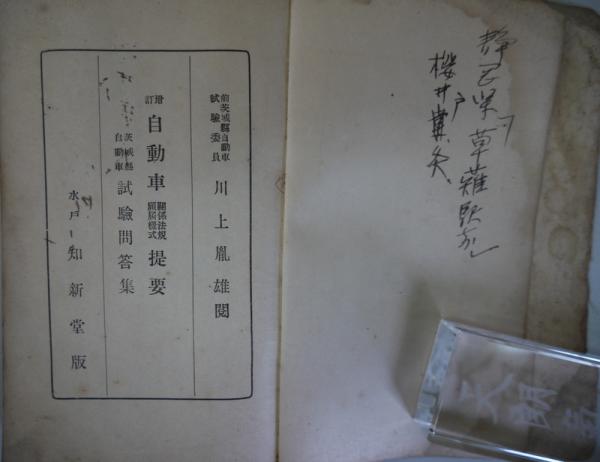 静岡県
草薙駅前
櫻井
前茨城縣自動車
試驗委員
川上胤雄閲
增訂
自動車
關係法規
願屆樣式
提要
茨城縣
自動車
試驗問答集
水戸
知新堂版
天明